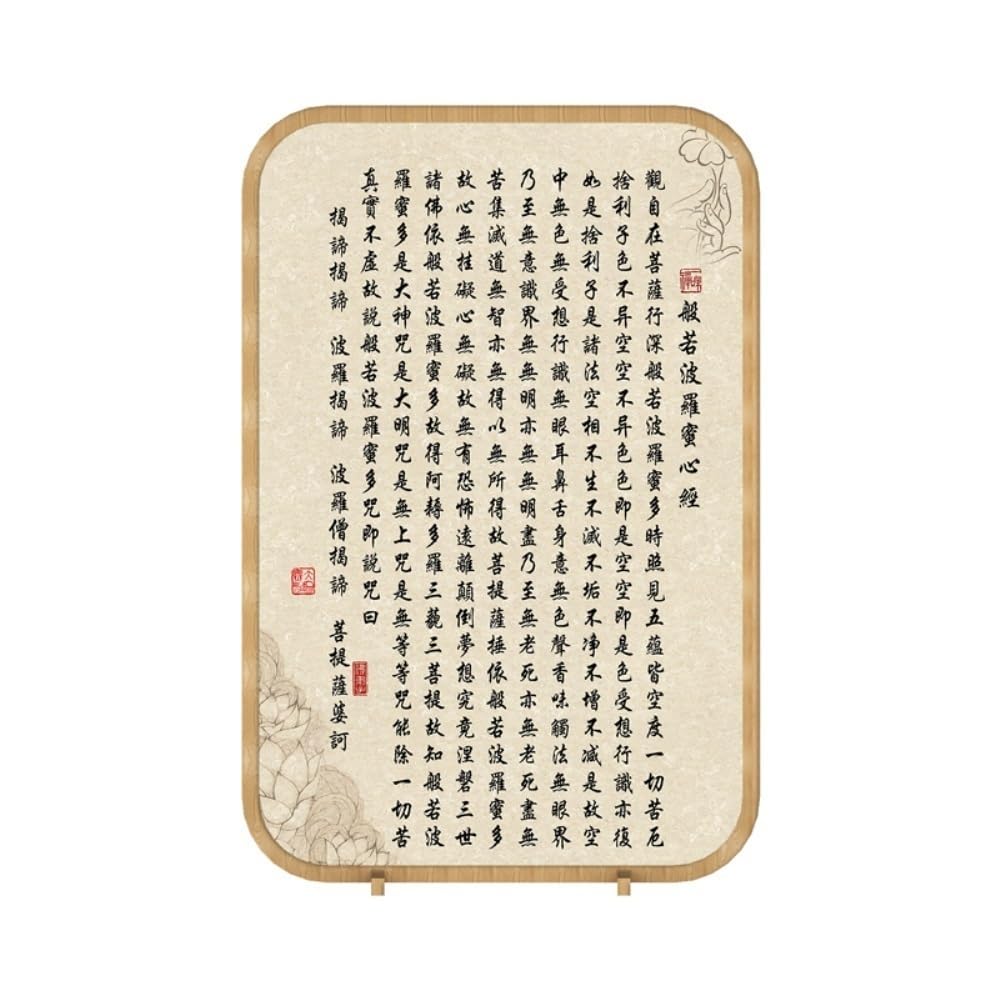 般若波羅蜜心經
觀自在菩薩行深般若波羅蜜多時照見五蘊皆空度一切苦厄
捨利子色不异空空不异色色即是空空即是色受想行識亦復
如是捨利子是諸法空相不生不滅不垢不净不增不减是故空
中無色無受想行識無眼耳鼻舌身意無色聲香味觸法無眼界
乃至無意識界無無明亦無無明盡乃至無老死亦無老死盡無
苦集滅道無智亦無得以無所得故菩提薩捶依般若波羅蜜多
故心無挂礙心無礙故無有恐怖遠離顛倒夢想究竟涅磐三世
諸佛依般若波羅蜜多故得阿耨多羅三藐三菩提故知般若波
羅蜜多是大神咒是大明咒是無上咒是無等等咒能除一切苦
真實不虛故説般若波羅蜜多咒即説咒曰
揭諦揭諦 波羅揭諦 波羅僧揭諦 菩提薩婆訶